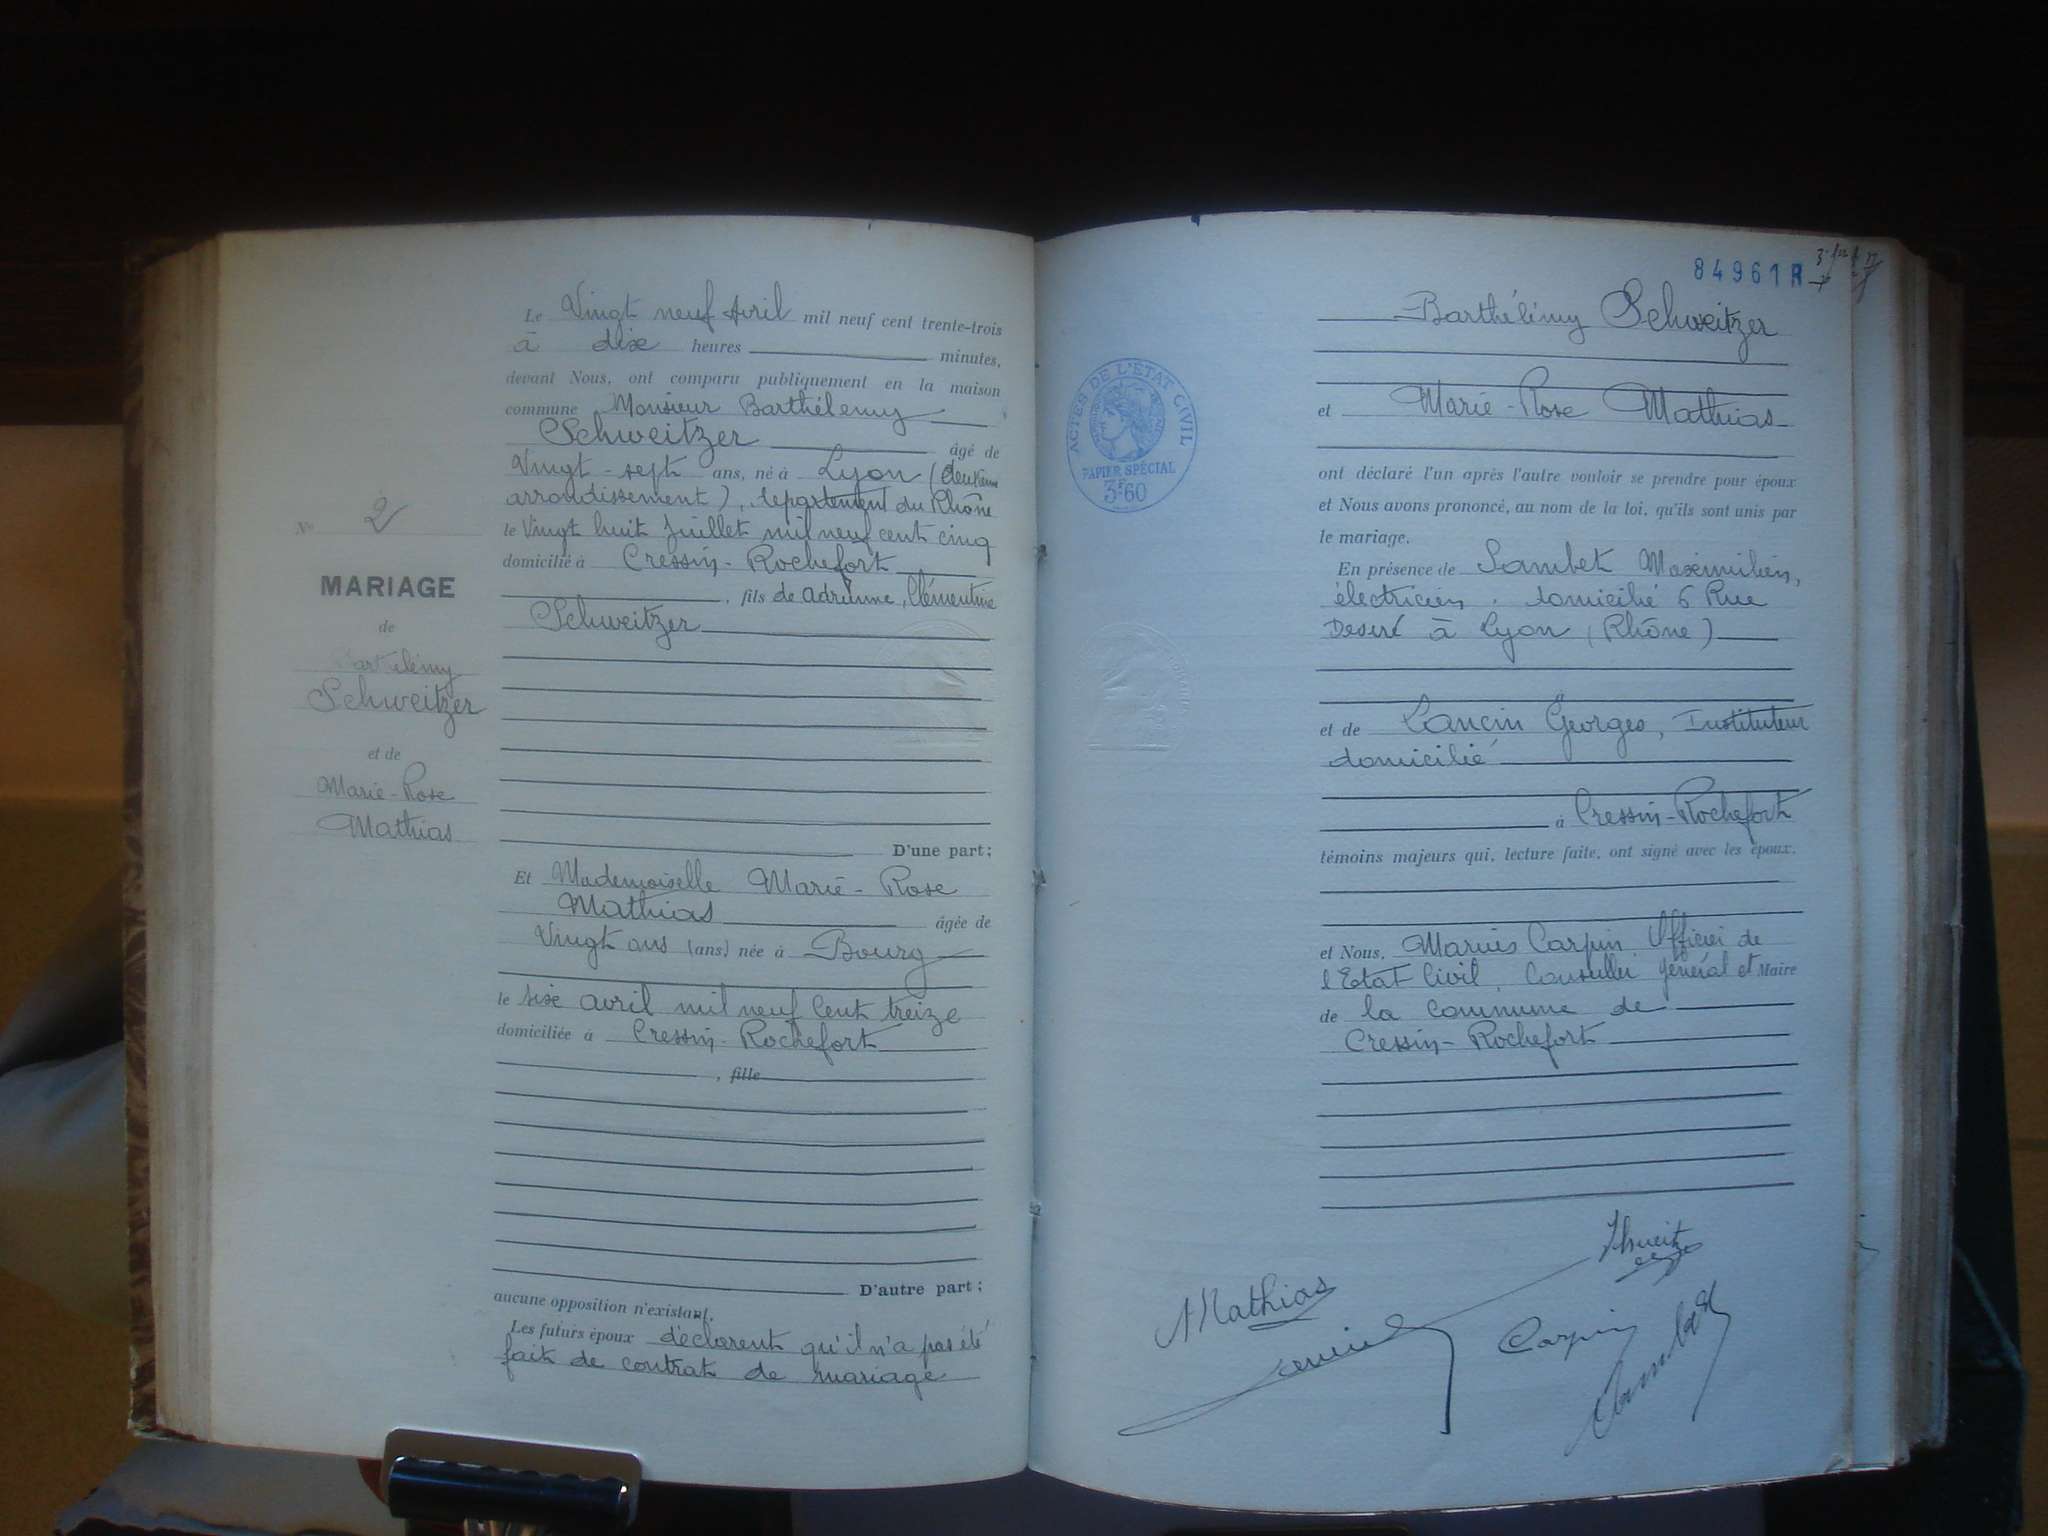 Le Vingt neuf Avril mil neuf cent trente-trois
à dix heures minutes,
devant Nous, ont comparu publiquement en la maison
commune Monsieur Barthélemy
Schweitzer âgé de
Vingt-sept ans, né à Lyon (deuxième
arrondissement), département du Rhône
le Vingt huit Juillet mil neuf cent cinq
domicilié à Cressin-Rochefort
, fils de Adrienne, Clémentine
Schweitzer
No 2
MARIAGE
de
Barthélémy
Schweitzer
et de
Marie-Rose
Mathias
D'une part;
Et Mademoiselle Marie-Rose
Mathias âgée de
Vingt ans (ans) née à Bourg
le six avril mil neuf cent treize
domiciliée à Cressin-Rochefort
, fille
D'autre part;
aucune opposition n'existant.
Les futurs époux déclarent qu'il n'a pas été
fait de contrat de mariage
84961R
Barthélémy Schweitzer
et Marie-Rose Mathias
ACTES DE L'ÉTAT CIVIL
PAPIER SPÉCIAL
3F60
ont déclaré l'un après l'autre vouloir se prendre pour époux
et Nous avons prononcé, au nom de la loi, qu'ils sont unis par
le mariage.
En présence de Sambet Maximilien,
électricien, domicilié 5 Rue
à Lyon (Rhône)
et de Lancin Georges, Instituteur
domicilié
à Cressin-Rochefort
témoins majeurs qui, lecture faite, ont signé avec les époux.
et Nous, Marius Carpin Officier de
l'Etat Civil, Conseiller général et Maire
de la commune de
Cressin-Rochefort
Mathias
Carpin